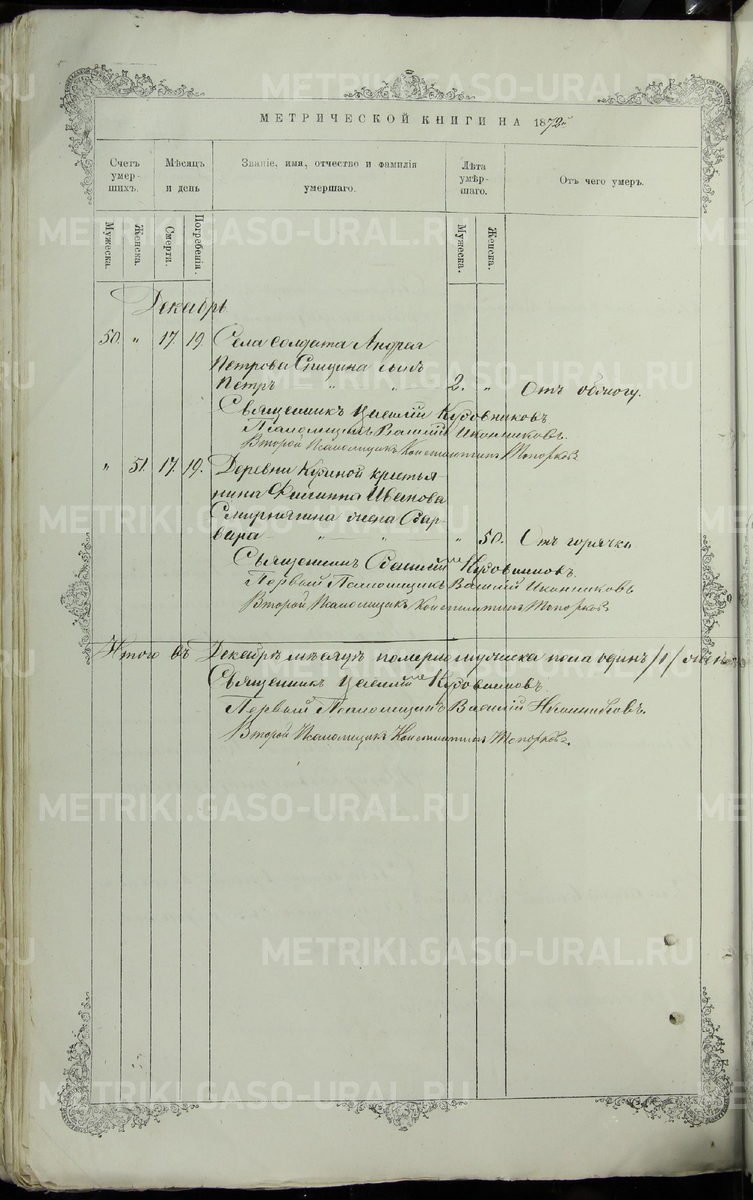 МЕТРИЧЕСКОЙ КНИГИ НА 1872
Счетъ умер-шихъ.
Мѣсяцъ и день
Званіе, имя, отчество и фамилія умершаго.
Лѣта умер-шаго.
Отъ чего умеръ.
Мужеска.
Женска.
Смерти.
Погребенія.
Мужеска.
Женска.
Декабрь
50. " 17 19 Села солдата Андрея
Петрова Спицина сынъ
Петръ " " 2. " Отъ
Священникъ
Псаломщикъ Василій Иконниковъ.
Второй Псаломщикъ Константинъ Топорковъ
" 51. 17. 19. Деревни крестья-
нина Филиппа Иванова
Смирнягина жена Вар-
вара " 50. Отъ горячки
Священникъ
Первый Псаломщикъ Василій Иконниковъ
Второй Псаломщикъ Константинъ Топорковъ
Итого въ Декабрѣ мѣсяцѣ померло мужеска пола одинъ /1/
Священникъ
Первый Псаломщикъ Василій Иконниковъ.
Второй Псаломщикъ Константинъ Топорковъ.
METRIKI.GASO-URAL.RU